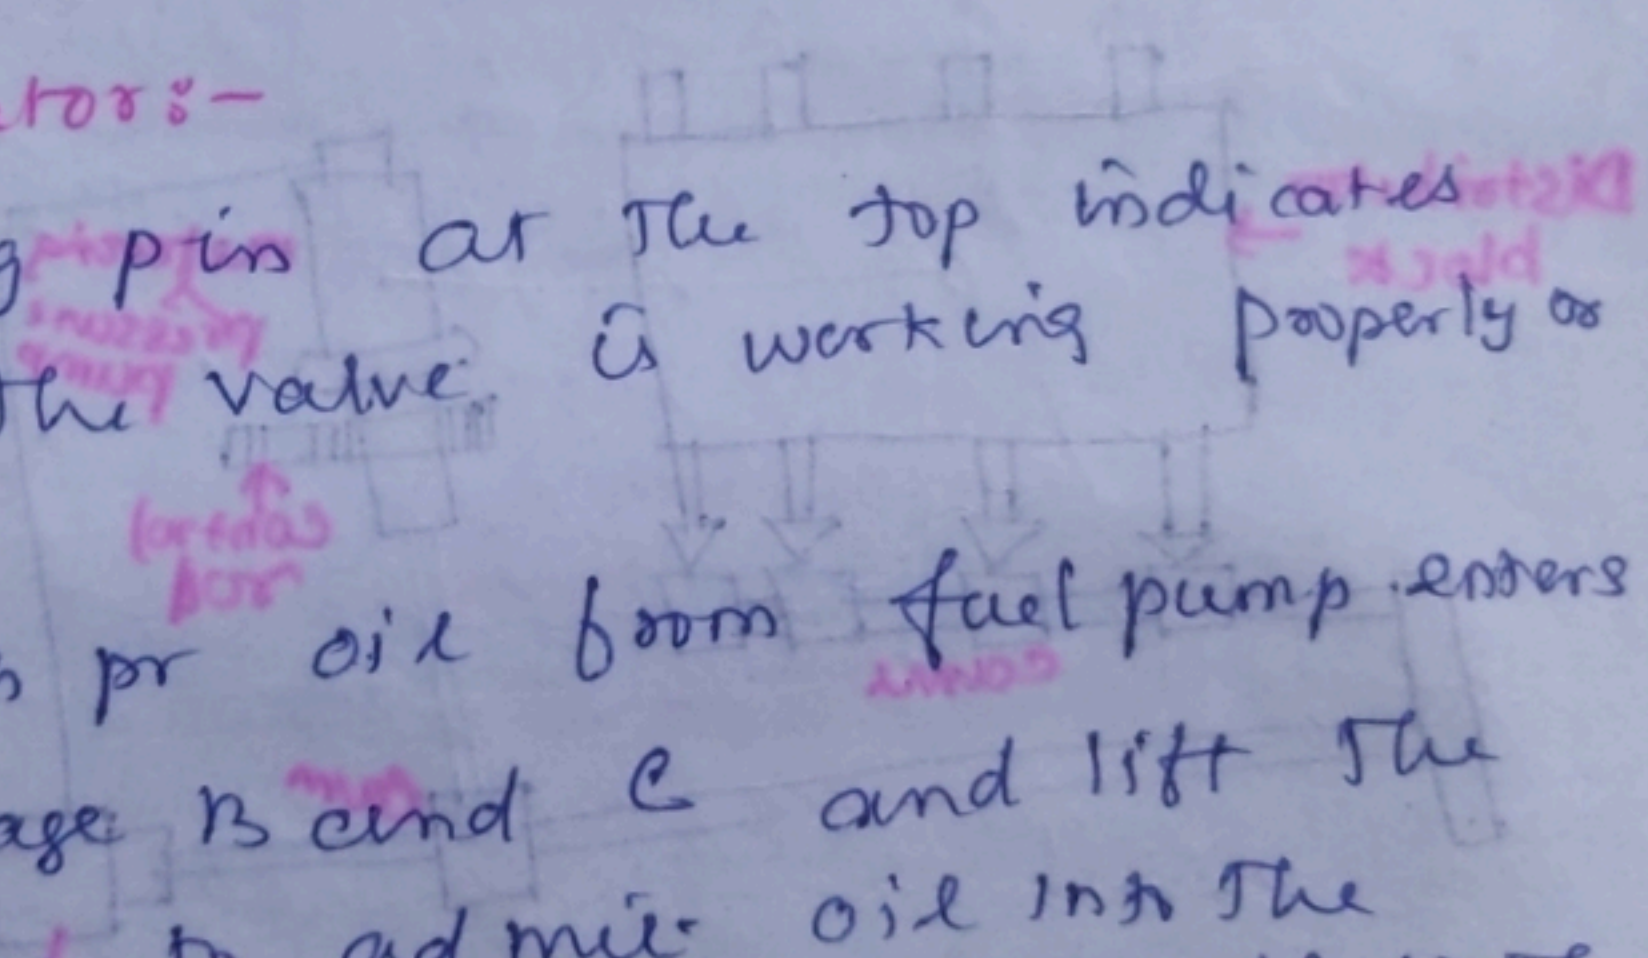 tor:-
g pin at the top indicates
the valve is working properly or
pr oil from fuel pump enters
age B and C and lift the
to admit oil into the